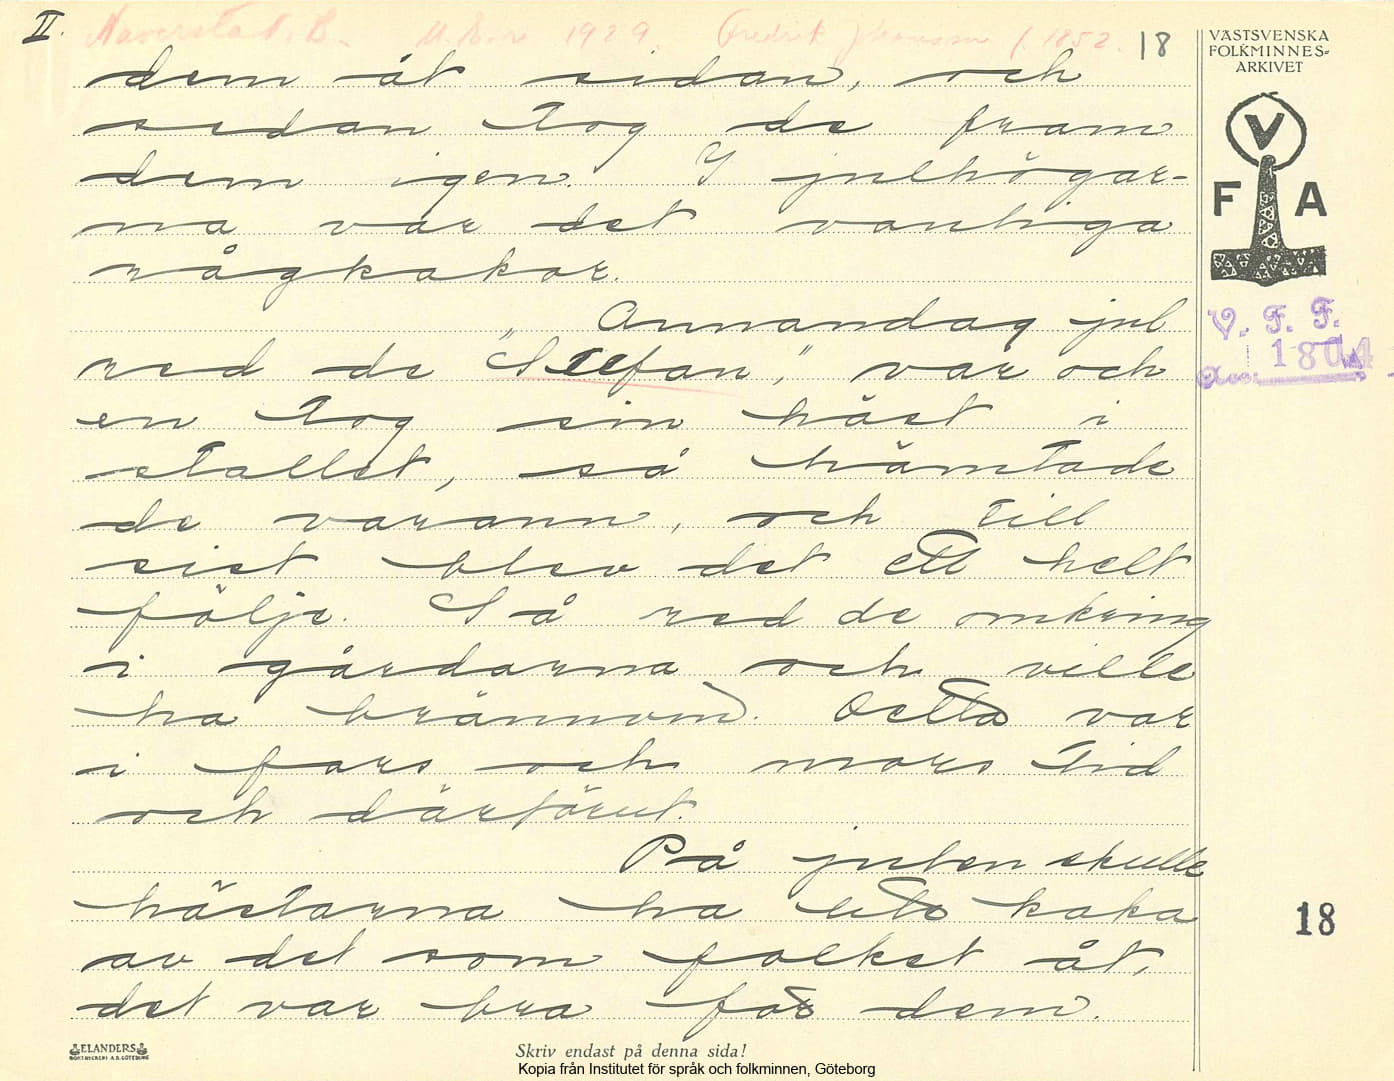 II. Naverstad, B. M. E-n 1929. Fredrik Johansson f. 1852. 18
VÄSTSVENSKA
FOLKMINNES-
ARKIVET
V
F A
V. F. F.
Acc. 1804
dem åt sidan, och
sedan tog de fram
dem igen. I julhögar-
na var det vanliga
rågkakor.
Annandag jul
red de "Stefan", var och
en tog sin häst i
stallet, så hämtade
de varann, och till
sist blev det ett helt
följe. Så red de omkring
i gårdarna och ville
ha brännvin. Detta var
i fars och mors tid
och därförut.
På julen skulle
hästarna ha lite kaka
av det som folket åt,
det var bra för dem.
18
ELANDERS
BOKTRYCKERI A.B. GÖTEBORG
Skriv endast på denna sida!
Kopia från Institutet för språk och folkminnen, Göteborg